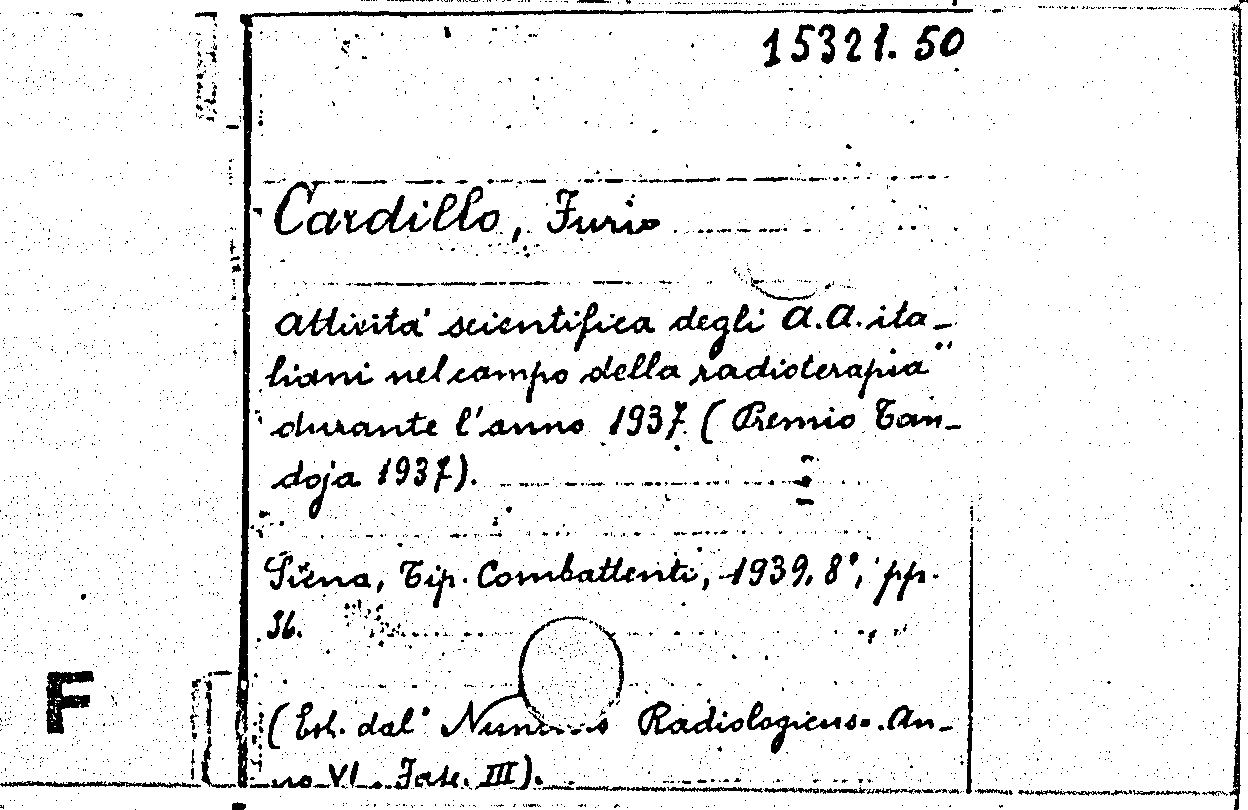 15321.50
Cardillo, Furio
Attività scientifica degli A.A. ita-
liani nel campo della "radioterapia"
durante l'anno 1937 (Premio Tan-
doja 1937).
Siena, Tip. Combattenti, 1939, 8°, pp.
36.
F
(Est. dal "Nuntius Radiologicus". An-
no VI. Fasc. III).